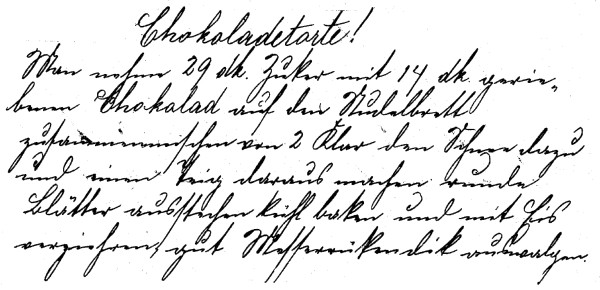 Chokoladetorte!
Man nehme 29 dk. Zuker mit 14 dk. gerie-
benen Chokolad auf den Nudelbrett
zusammenmischen von 2 Klar den Schnee dazu
und einen Teig daraus machen runde
Blätter ausstechen kühl baken und mit Eis
verziehren, gut Messerrükendik auswalgen.